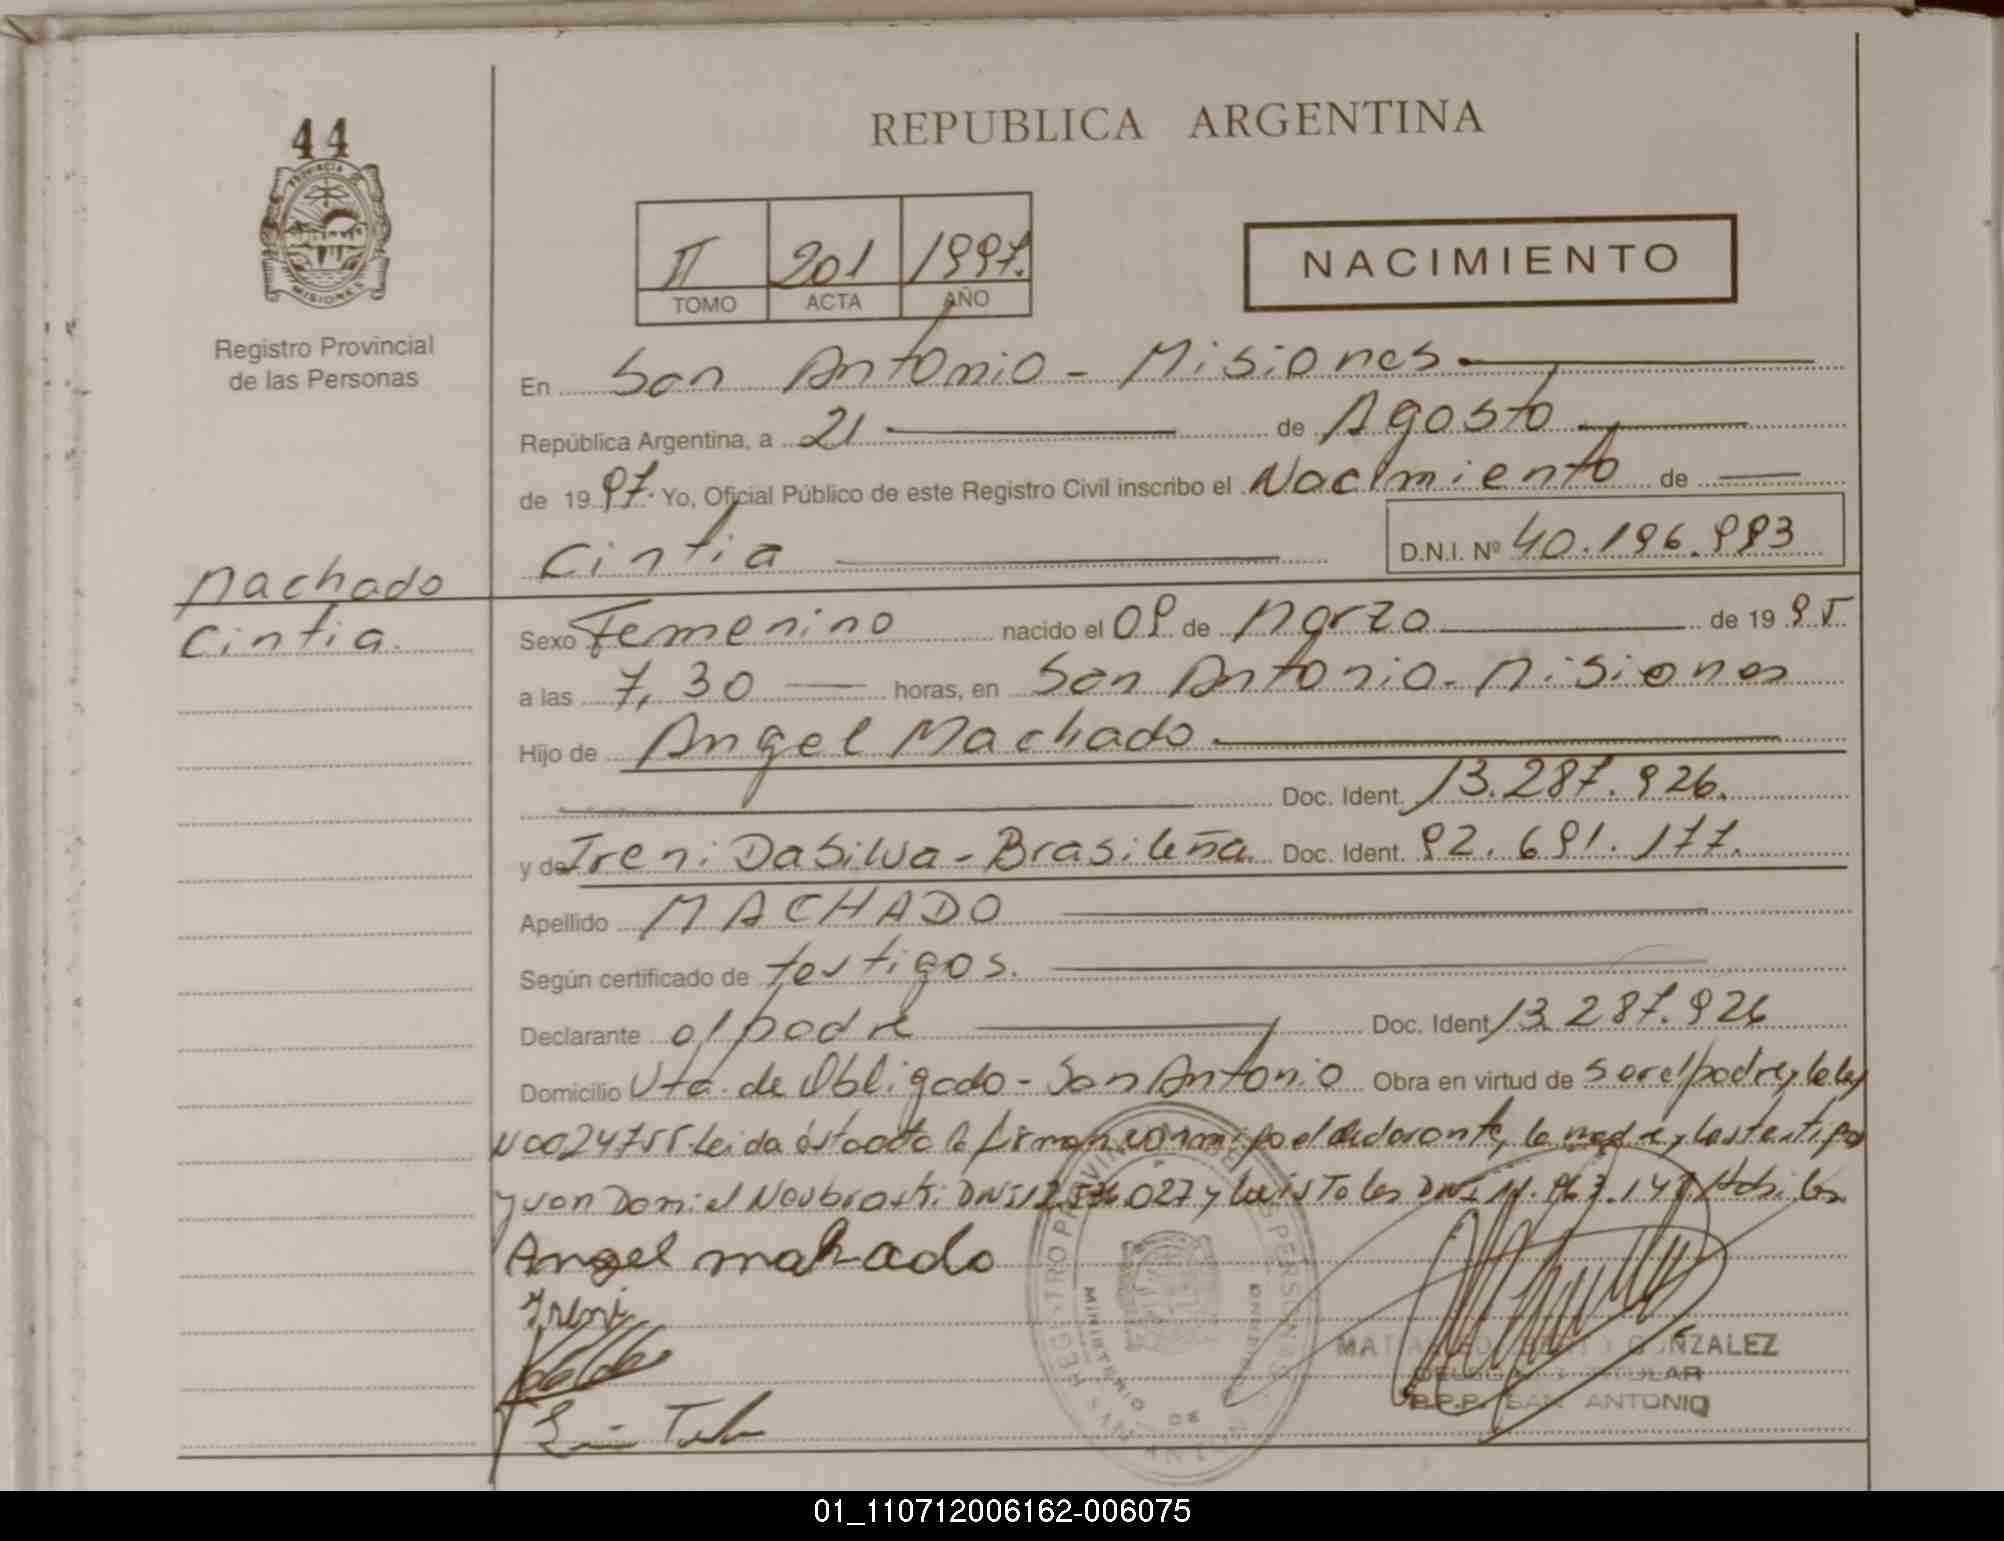 44
PROVINCIA DE
MISIONES
Registro Provincial
de las Personas
Machado
Cintia.
REPUBLICA ARGENTINA
II 201 1997.
TOMO ACTA AÑO
NACIMIENTO
En San Antonio - Misiones
República Argentina, a 21 de Agosto
de 1997. Yo, Oficial Público de este Registro Civil inscribo el Nacimiento de
Cintia D.N.I. Nº 40.196.993
Sexo Femenino nacido el 09 de Marzo de 1995
a las 7,30 horas, en San Antonio - Misiones
Hijo de Angel Machado
Doc. Ident. 13.287.926.
y de Ireni DaSilva - Brasileña Doc. Ident. 92.691.177.
Apellido MACHADO
Según certificado de testigos.
Declarante el padre Doc. Ident 13.287.926
Domicilio Vta. de Obligado - San Antonio Obra en virtud de ser el padre, y la ley
Nº 24755 Leida ésta acta la firman conmigo el declarante, la madre y los testigos
Juan Daniel DNI 027 y Luis Tales DNI Hábiles
Angel mahado
Ireni
REGISTRO PROVINCIAL DE LAS PERSONAS
MINISTERIO DE GOBIERNO
SAN ANTONIO
GONZALEZ
DELEGADO TITULAR
R.P.P. SAN ANTONIO
01_110712006162-006075